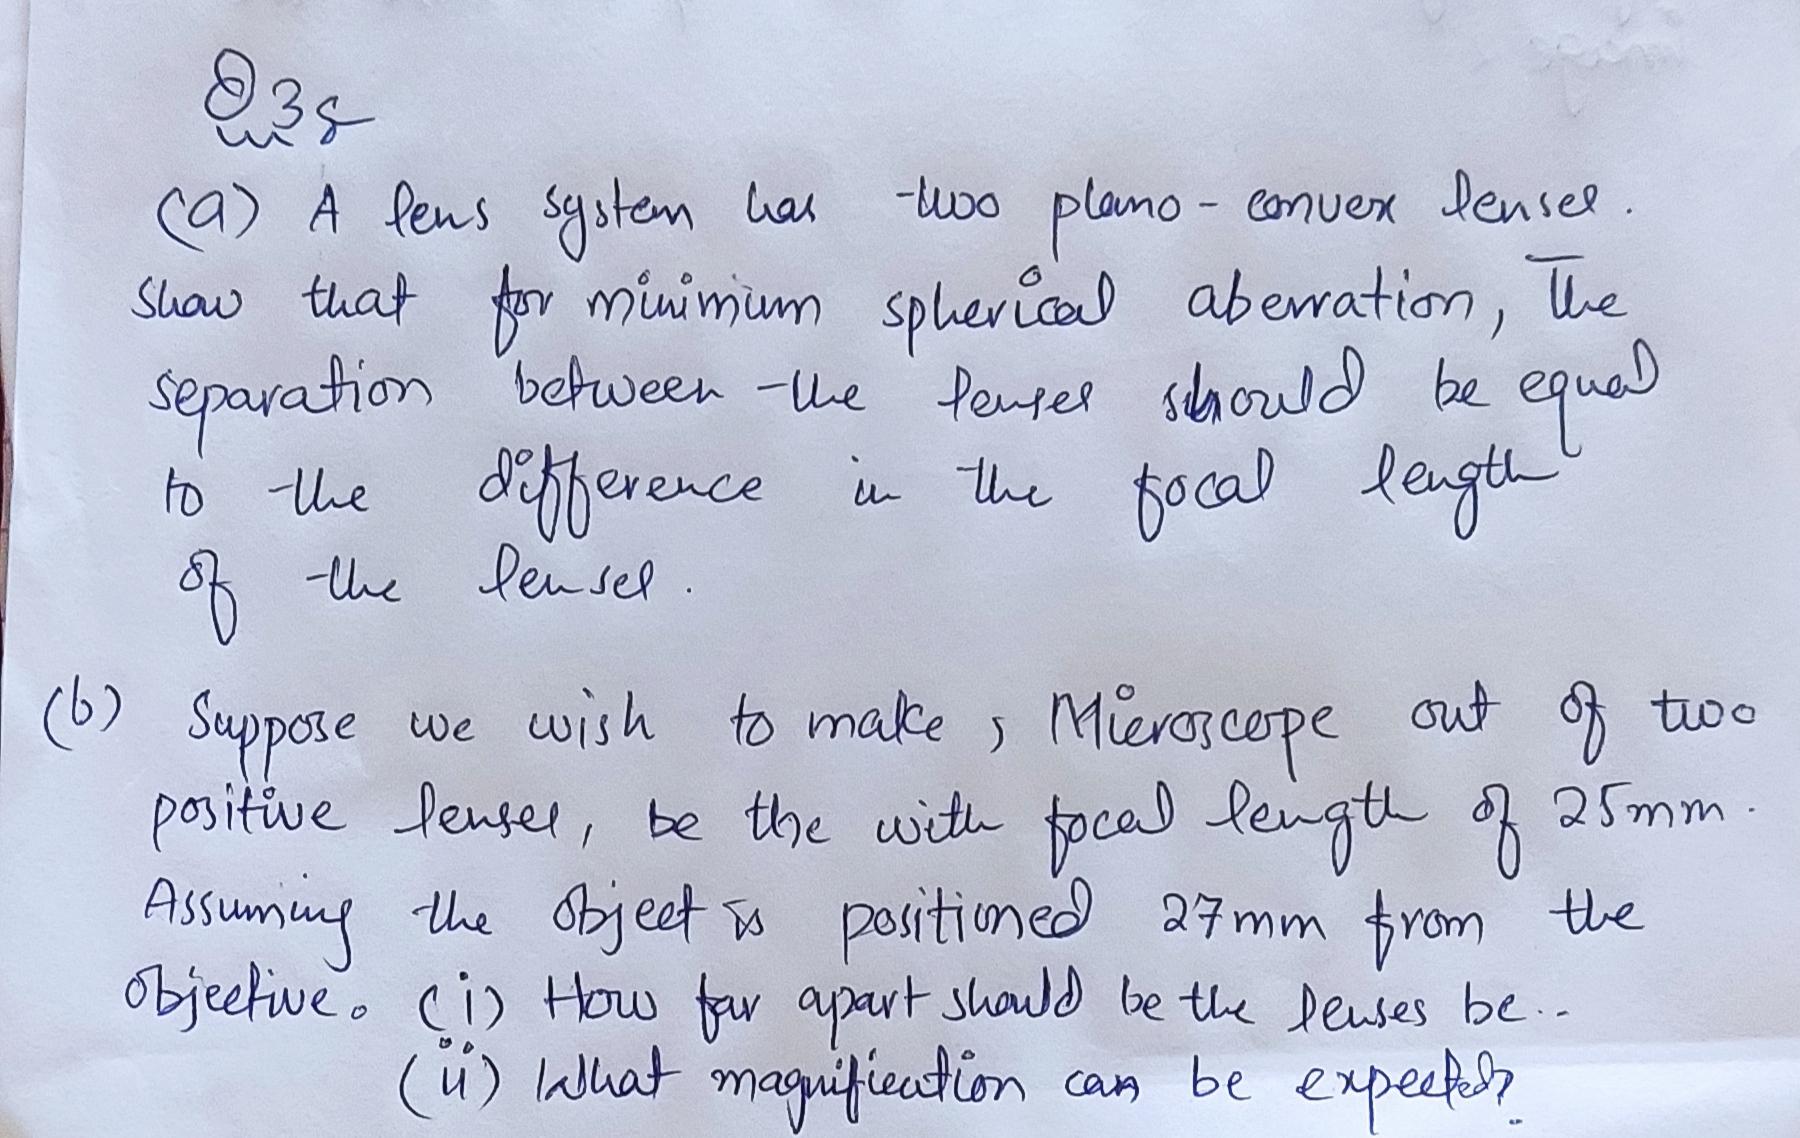 Q3:
(a) A lens system has two plano-convex lenses.
Show that for minimum spherical aberration, The
separation between the lenses should be equal
to the difference in the focal length
of the lenses.
(b) Suppose we wish to make ; Microscope out of two
positive lenses, be the with focal length of 25mm.
Assuming the object is positioned 27mm from the
objective. (i) How far apart should be the lenses be..
(ii) What magnification can be expected?